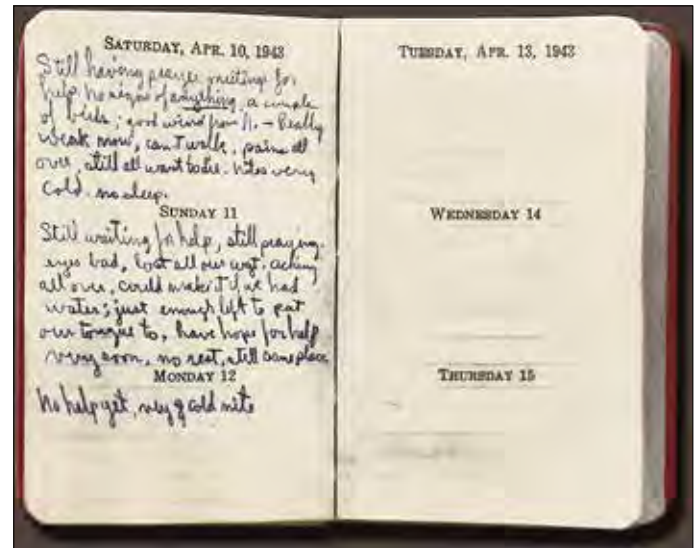 SATURDAY, APR. 10, 1943
Still having prayer meetings for
help. No signs of anything, a couple
of birds; good wind from N. – Really
weak now, can't walk. pains all
over, still all want to die. Nites very
cold. no sleep.
SUNDAY 11
Still waiting for help, still praying.
eyes bad, lost all our wgt. aching
all over, could make it if we had
water; just enough left to put
our tongue to, have hope for help
very soon, no rest, still same place
MONDAY 12
No help yet, very cold nite
TUESDAY, APR. 13, 1943
WEDNESDAY 14
THURSDAY 15